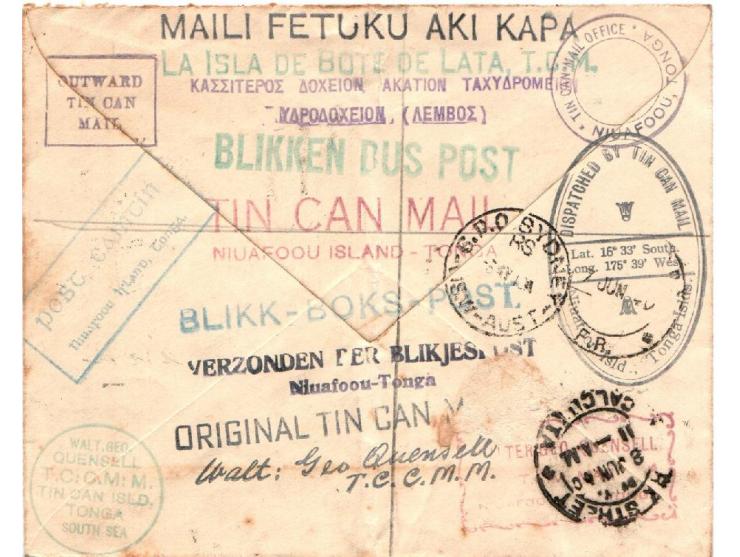 MAILI FETUKU AKI KAPA
LA ISLA DE BOTE DE LATA, T.C.M.
ΚΑΣΣΙΤΕΡΟΣ ΔΟΧΕΙΟΝ ΑΚΑΤΙΟΝ ΤΑΧΥΔΡΟΜΕΙ
ΥΔΡΟΔΟΧΕΙΟΝ, (ΛΕΜΒΟΣ)
OUTWARD
TIN CAN
MAIL
TIN CAN MAIL OFFICE
NIUAFOOU, TONGA
BLIKKEN BUS POST
DISPATCHED BY TIN CAN MAIL
Lat. 16° 33' South.
Long. 175° 39' West
JUN
Tonga Islds.
TIN CAN MAIL
NIUAFOOU ISLAND - TONGA
G.P.O. SYDNEY
RS
N.S.W-AUST
POST
Niuafoou Island, Tonga.
BLIKK-BOKS-POST.
VERZONDEN PER BLIKJESPOST
Niuafoou-Tonga
ORIGINAL TIN CAN M
Walt: Geo Quensell
T.C.C.M.M.
WALT. GEO.
QUENSELL
T.C.C.M.M.
TIN CAN ISLD.
TONGA
SOUTH SEA
TER GEO QUENSELL
PARK STREET
CALCUTTA
11-AM
8 JUN